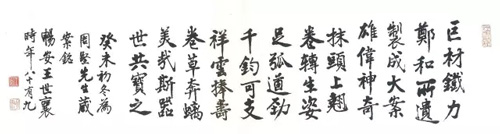 巨材鐵力
鄭和所遺
製成大案
雄偉神奇
抹頭上翹
卷轉生姿
足弧遒勁
千鈞可支
祥雲捧壽
卷草奔螭
美哉斯器
世共寶之
癸未初冬為
周堅先生藏
案銘
暢安王世襄
時年八十有九